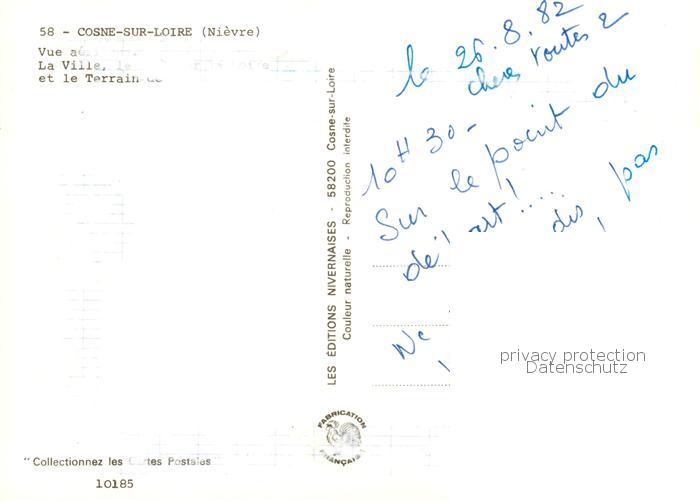 58 - COSNE-SUR-LOIRE (Nièvre)
Vue
La Ville,
et le Terrain
LES ÉDITIONS NIVERNAISES - 58200 Cosne-sur-Loire
Couleur naturelle - Reproduction interdite
le 26.8.82
routes 2
10H30-
Sur le point du
dé art!.....
dis, pas
Ne
privacy protection
Datenschutz
FABRICATION
FRANÇAISE
"Collectionnez les Cartes Postales
10185